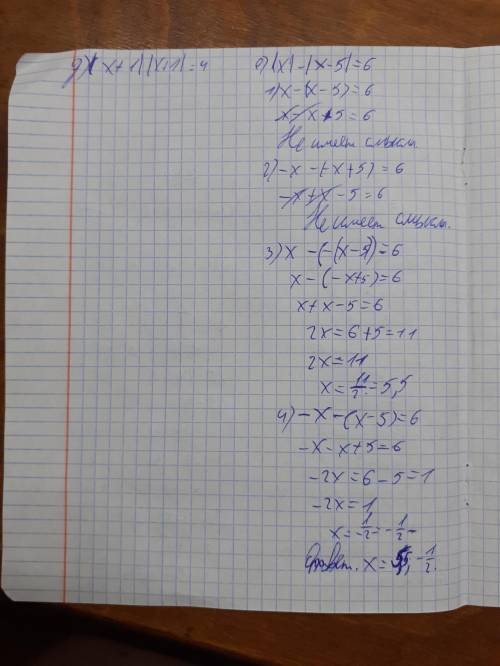 д) |x+1||x+1|=4
е) |x|-|x-5|=6
1) x-(x-5)=6
x-x+5=6
Не имеет смысла
2) -x-(-x+5)=6
-x+x-5=6
Не имеет смысла.
3) x-(-(x-5))=6
x-(-x+5)=6
x+x-5=6
2x=6+5=11
2x=11
x=11/2=5,5
4) -x-(x-5)=6
-x-x+5=6
-2x=6-5=1
-2x=1
x=1/-2=-1/2
Ответ. x=5,5, -1/2.